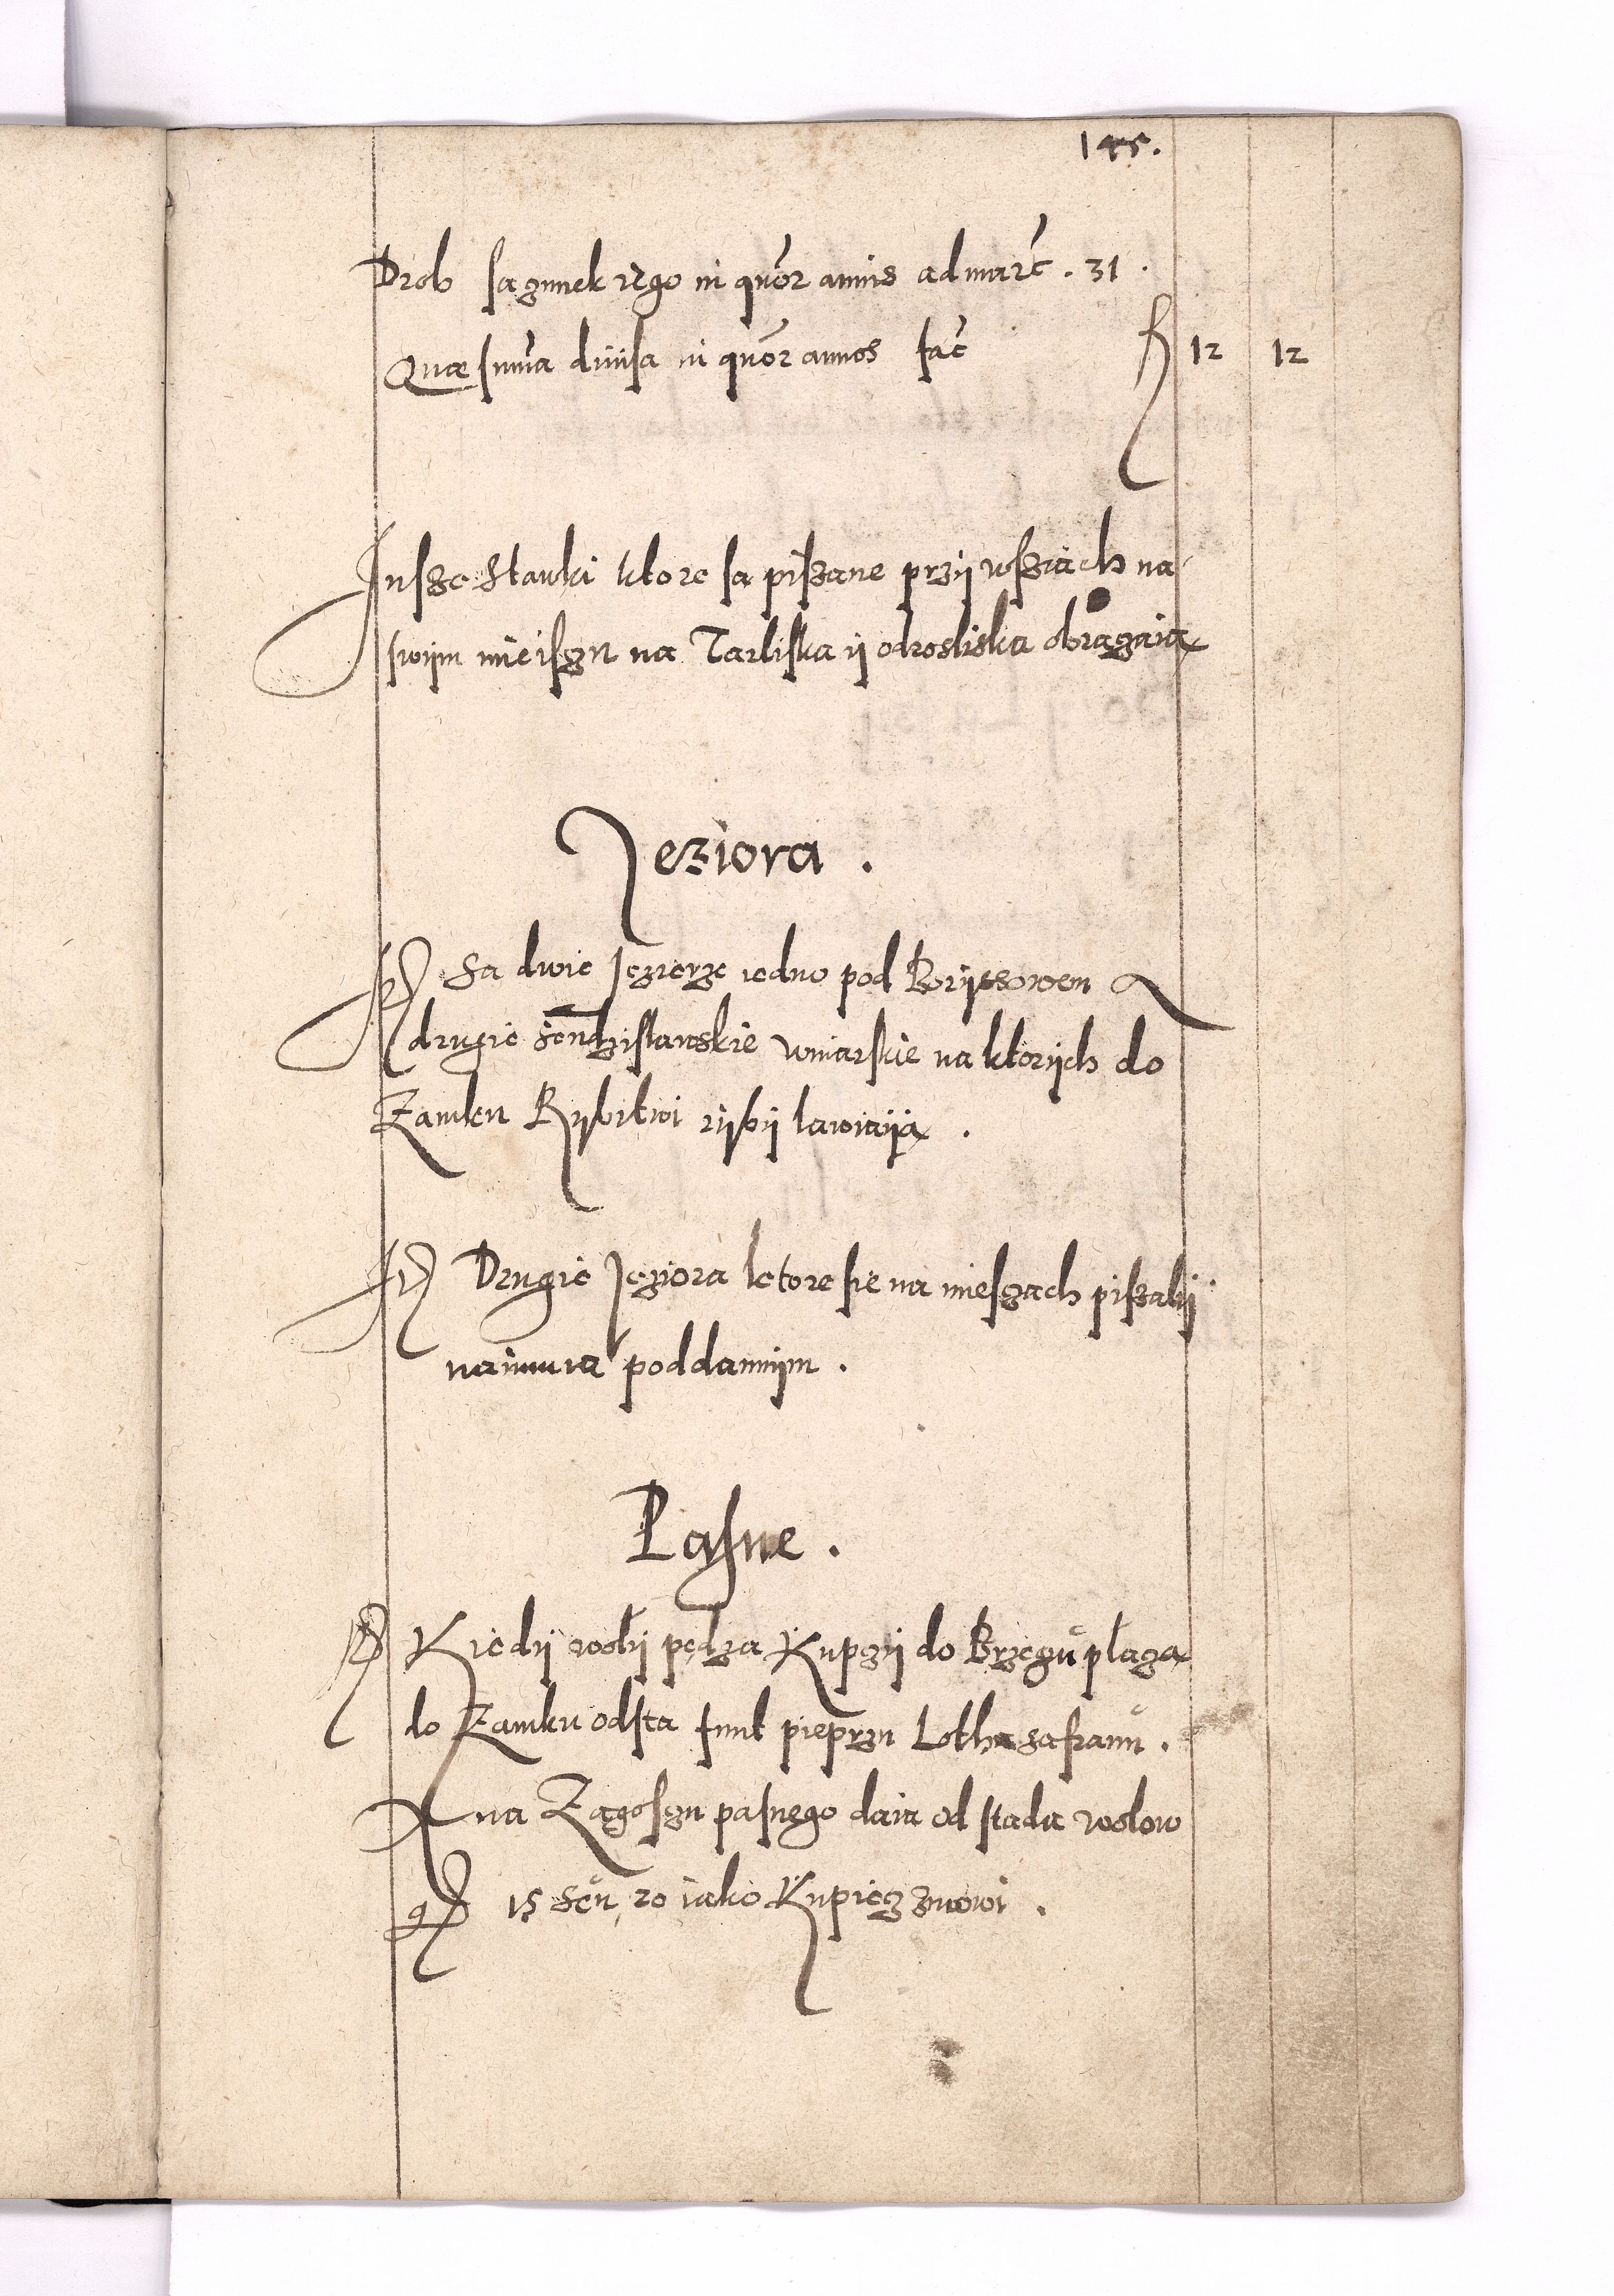 145.
Drob sagunek iego in quor annis ad marc . 31 .
Quæ suma diuisa in quor annos fac fl 12 12
Insze stawki ktore sa piszane przÿ wsziach na
swÿm mieiszu na Tarliska ÿ odrosliska obragaią
Jeziora .
Sa dwie Jezierze iedno pod Borÿssowem
drugie vniarskie na ktorÿch do
Zamku Rÿbitwi rÿbÿ lawiaÿą .
Drugie Jeziora ktore sie na mieszach piszalÿ
naimuia poddannÿm .
Pasne .
Kiedÿ wolÿ pędza Kupczÿ do Brzegu płaczą
do Zamku od sta funt pieprzu Loth safranu .
na Zagoszu pasnego daia od stada wolow
15 scu, 20 iako Kupiecz zmowi .